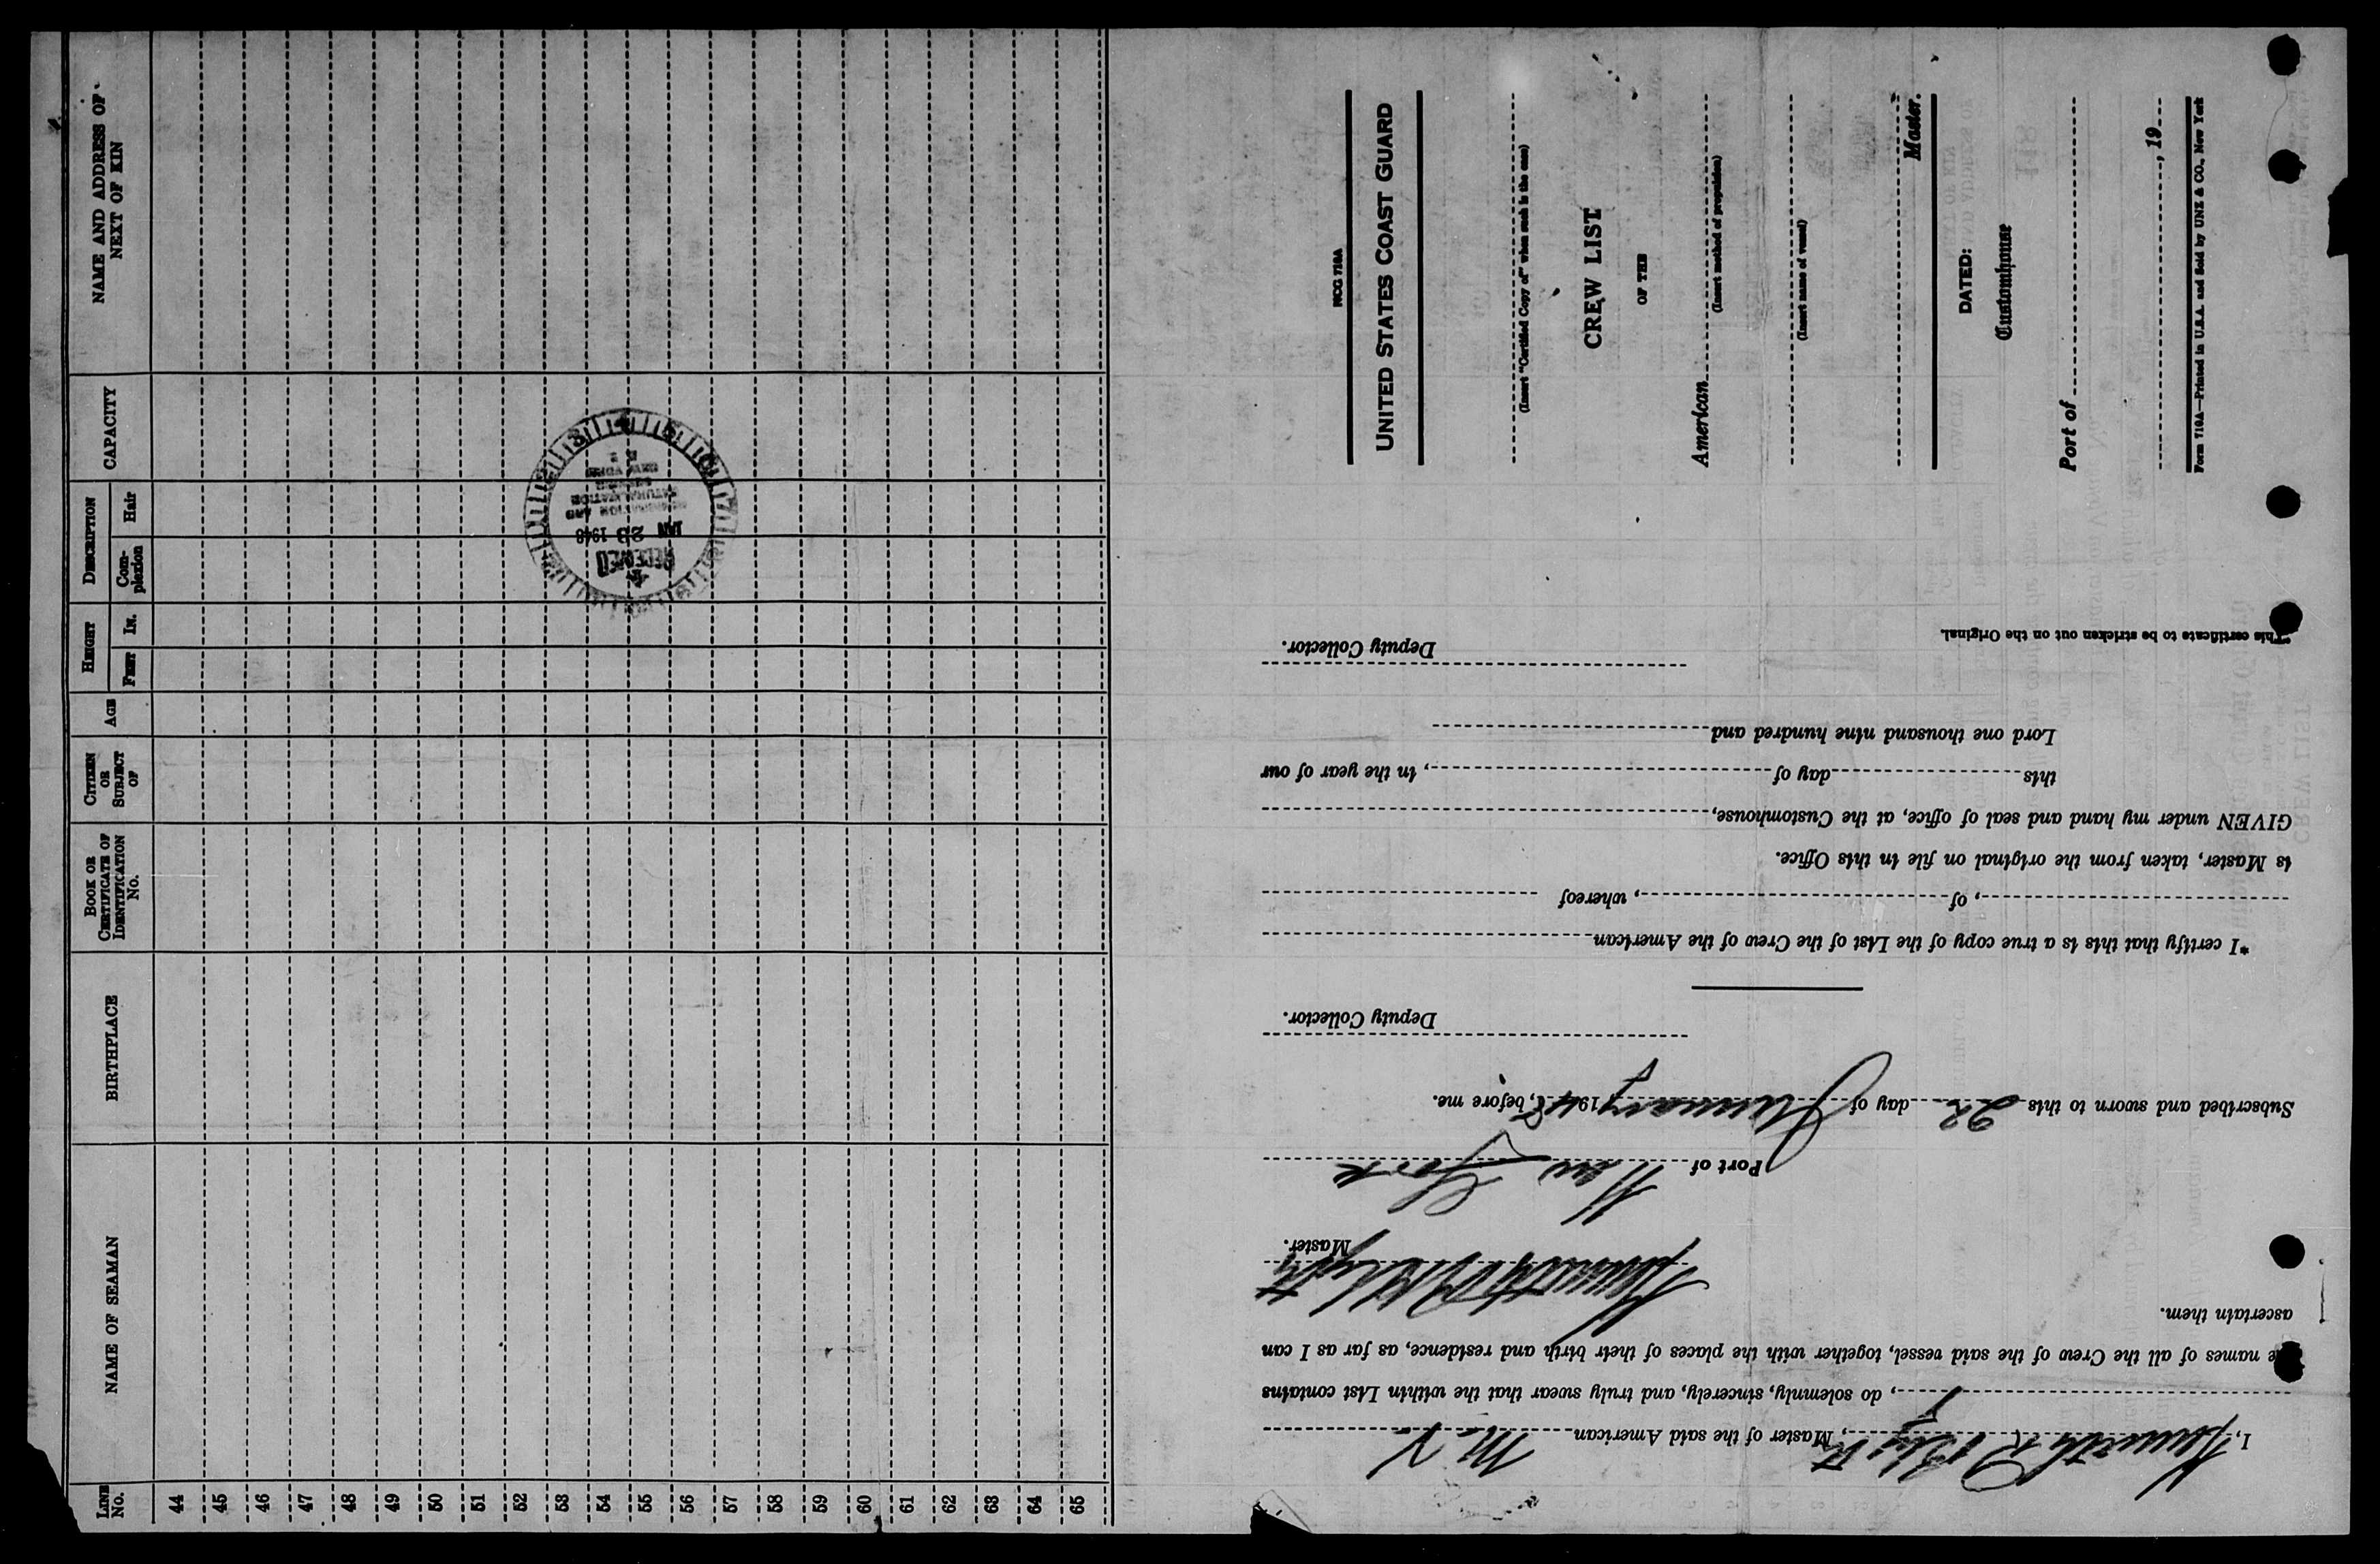 LINE No.
NAME OF SEAMAN
BIRTHPLACE
BOOK OR CERTIFICATE OF IDENTIFICATION No.
CITIZEN OR SUBJECT OF
AGE
HEIGHT
FEET
IN.
DESCRIPTION
Com-
plexion
Hair
CAPACITY
NAME AND ADDRESS OF
NEXT OF KIN
44
45
46
47
48
49
50
51
52
53
54
55
56
57
58
59
60
61
62
63
64
65
RECEIVED
JAN 23 1948
IMMIGRATION AND
NATURALIZATION
SERVICE
NEW YORK
NCG 710A
UNITED STATES COAST GUARD
(Insert "Certified Copy of" when such is the case)
CREW LIST
OF THE
American
(Insert method of propulsion)
(Insert name of vessel)
Master.
DATED:
Customhouse
Port of
, 19
Form 710A—Printed in U.S.A. and Sold by UNZ & CO., New York
I, Kenneth R , Master of the said American M.V.
, do solemnly, sincerely, and truly swear that the within List contains
names of all the Crew of the said vessel, together with the places of their birth and residence, as far as I can
ascertain them.
Kenneth
Master.
Port of New York
Subscribed and sworn to this 22 day of January 1948, before me.
Deputy Collector.
*I certify that this is a true copy of the List of the Crew of the American
, of , whereof
is Master, taken from the original on file in this Office.
GIVEN under my hand and seal of office, at the Customhouse,
this day of , in the year of our
Lord one thousand nine hundred and
Deputy Collector.
*This certificate to be stricken out on the Original.